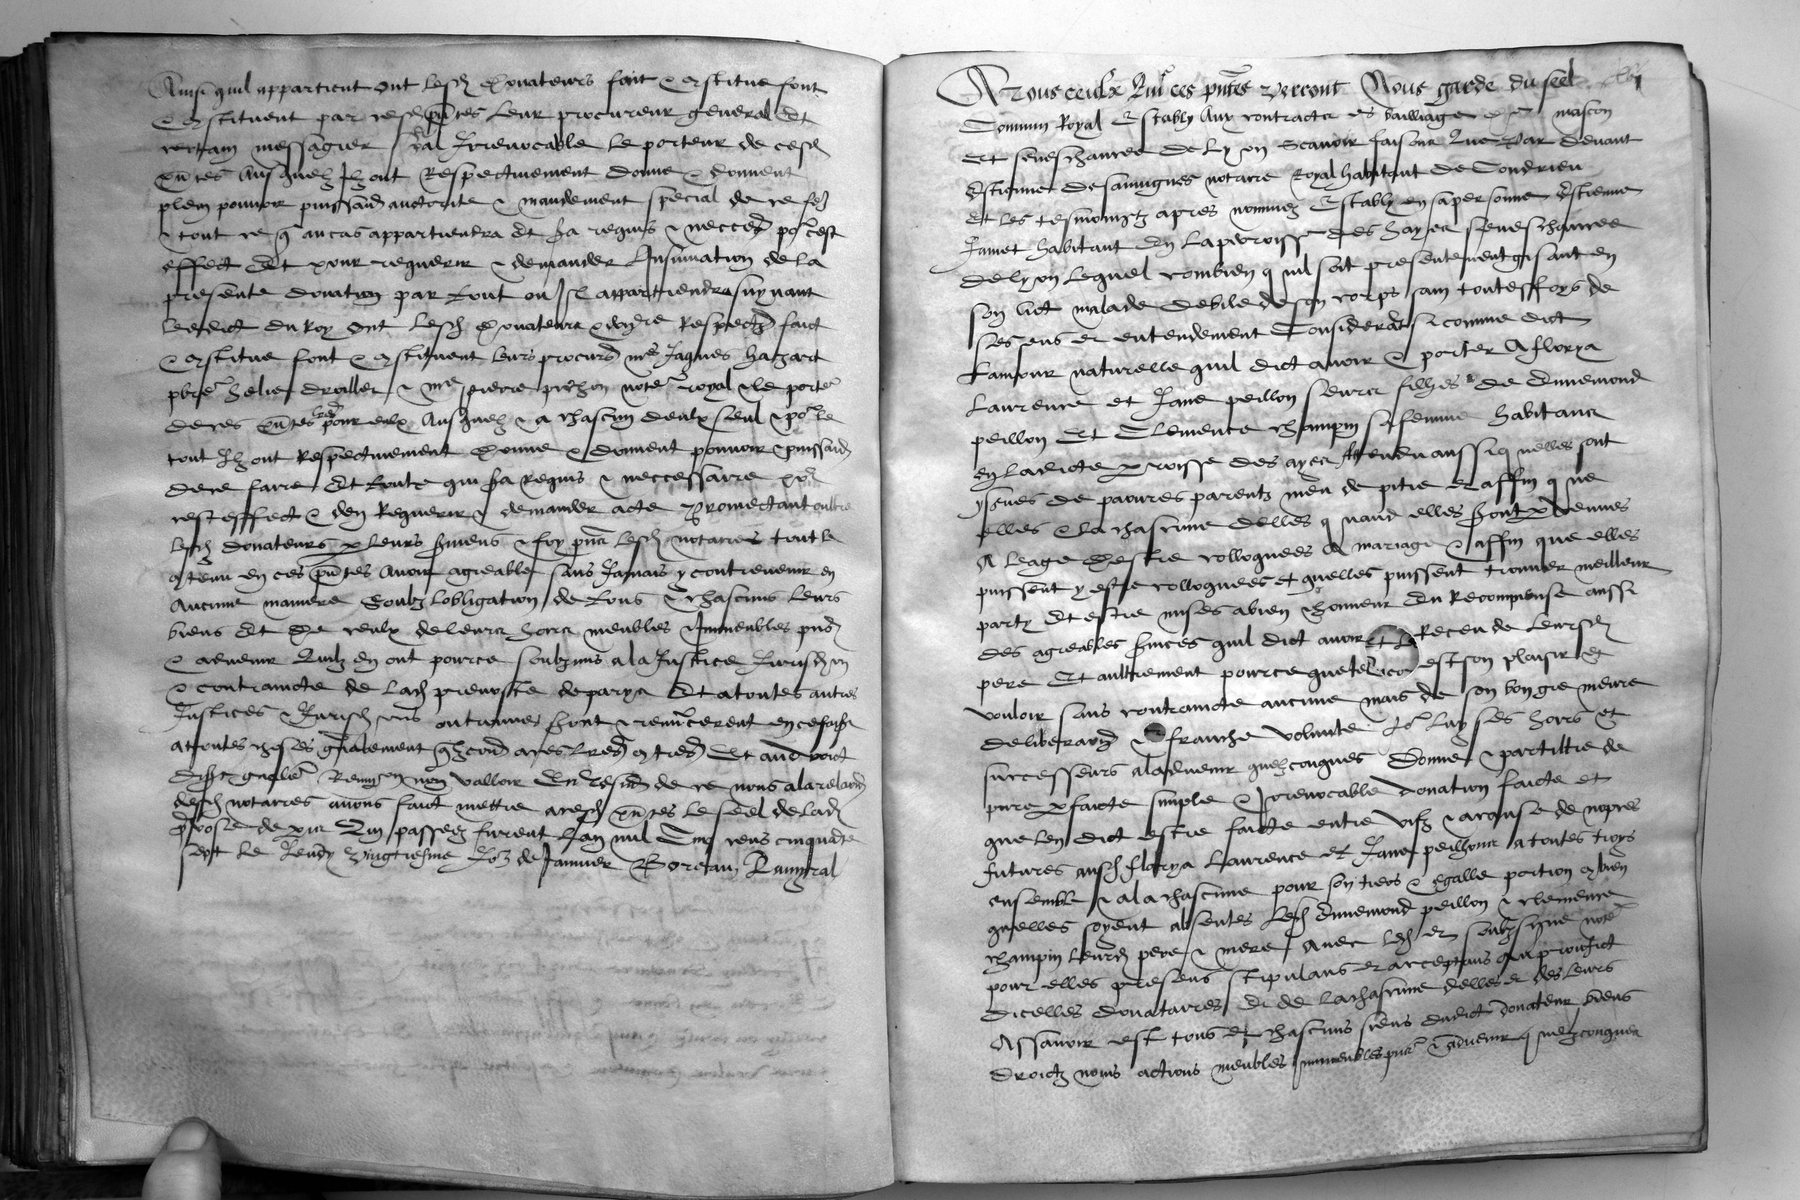 Ainsi quil appartient ont lesd donateurs fait & constitue font
& constituent par cesd pntes leur procureur general Et
certain messagier Irrevocable le porteur de cesd
pntes Ausquelz Ilz ont Respectivement donne & donnent
plein pouvoir puissance auctorite & mandement special de ce fe
& tout ce q au cas appartiendra Et sera requis & necces po cest
effect Et pour requerir & demander Linsinuation de la
presente donation par tout ou Il appartiendra suyvant
Ledict du Roy Ont lesd donateurs Respect faict
& constitue font & constituent leurs procur me Jaques hazart
pbre helie droullet & me pierre pichon note royal & le porte
de ces pntes pour eulx Ausquelz & a chascun deulx seul & po le
tout Ilz ont Respectivement donne & donnent pouvoir & puissan
de ce faire Et toute qui sera Requis & neccessaire po
cest effect & den Requerir & demander acte Promectant oultre
lesd donateurs p leurs sermens & foy pnce lesd notaires tout le
contenu en ces pntes Avoir agreable sans Jamais y contrevenir en
Aucune maniere Soubz lobligation de tous & chascuns leurs
biens Et de ceulx de leurs hoirs meubles & Immeubles pns
& advenir Quilz en ont pource soubzmis a la Justice Jurisdon
& contraincte de lad prevoste de paris Et a toutes autres
Justices & Jurisd ou trouves seront & renoncerent en ce faisa
a toutes choses gnalement qzcond a ces lres contres Et au droict
disat gnalle Renonon non valloir En tesmo de ce nous a la relaon
desd notaires avons faict mettre a cesd pntes le seel de lad
prevoste de paris Qui passees furent lan mil Cinq cens cinquante
sept le Jeudy Vingtiesme Jor de Janvier
A Tous ceulx Qui ces pntes verront Nous garde du seel
Commun Royal Estably Aux contractz es bailliage de mascon
Et seneschaucee de Lyon Scavoir faisons Que Par devant
Estienne desauvignes notaire Royal habitant de Condrieu
Et les tesmoingtz apres nommez Estably en sa personne Estienne
Jamet habitant En la paroisse des hayes seneschaucee
de lyon Lequel combien quil soit presentement gisant en
son lict malade debile de son corps sain touteffoys de
ses sens et entendement Considerant si comme dict
Lamour naturelle quil dict avoir & porter A florya
Laurence et Jane peillon seurs filhes de Ennemond
peillon Et Clemence champin sa femme habitans
en ladicte paroisse des ayes Attendu aussi quelles sont
yssues de paovres parentz meu de pitie et affin que
elles & la chascune delles quand elles seront parvenues
A leage destre colloquees A mariage & affin que elles
puissent y estre colloquees et quelles puissent trouver meilleur
party Et estre mises a bien & honneur En Recompense aussi
des agreables services quil dict avoir Receu de leursd
pere Et aultrement pource que tel est son plaisir et
vouloir sans contraincte aucune mais de son bon gre meure
deliberaon & franche volunte Po luy ses hoirs et
successeurs a ladvenir quelzconques Donne & par tiltre de
pure parfaicte simple & Irrevocable donation faicte et
que len dict estre faicte entre vifz & a cause de nopces
futures ausd florya Laurence et Jane peilhons a toutes troys
ensemble & a la chascune pour son tiers & egalle portion combien
quelles soyent absentes Lesd Ennemond peillon & clemence
champin leursd pere & mere Avec lesd et soubzsigne note
pour elles presens stipulans et acceptans au prouffict
Dicelles donataires Et de lachascune delles et des leurs
Assavoir est tous Et chascuns siens dudict donateur biens
Droictz noms actions meubles Immeubles pns & advenir quelzconques